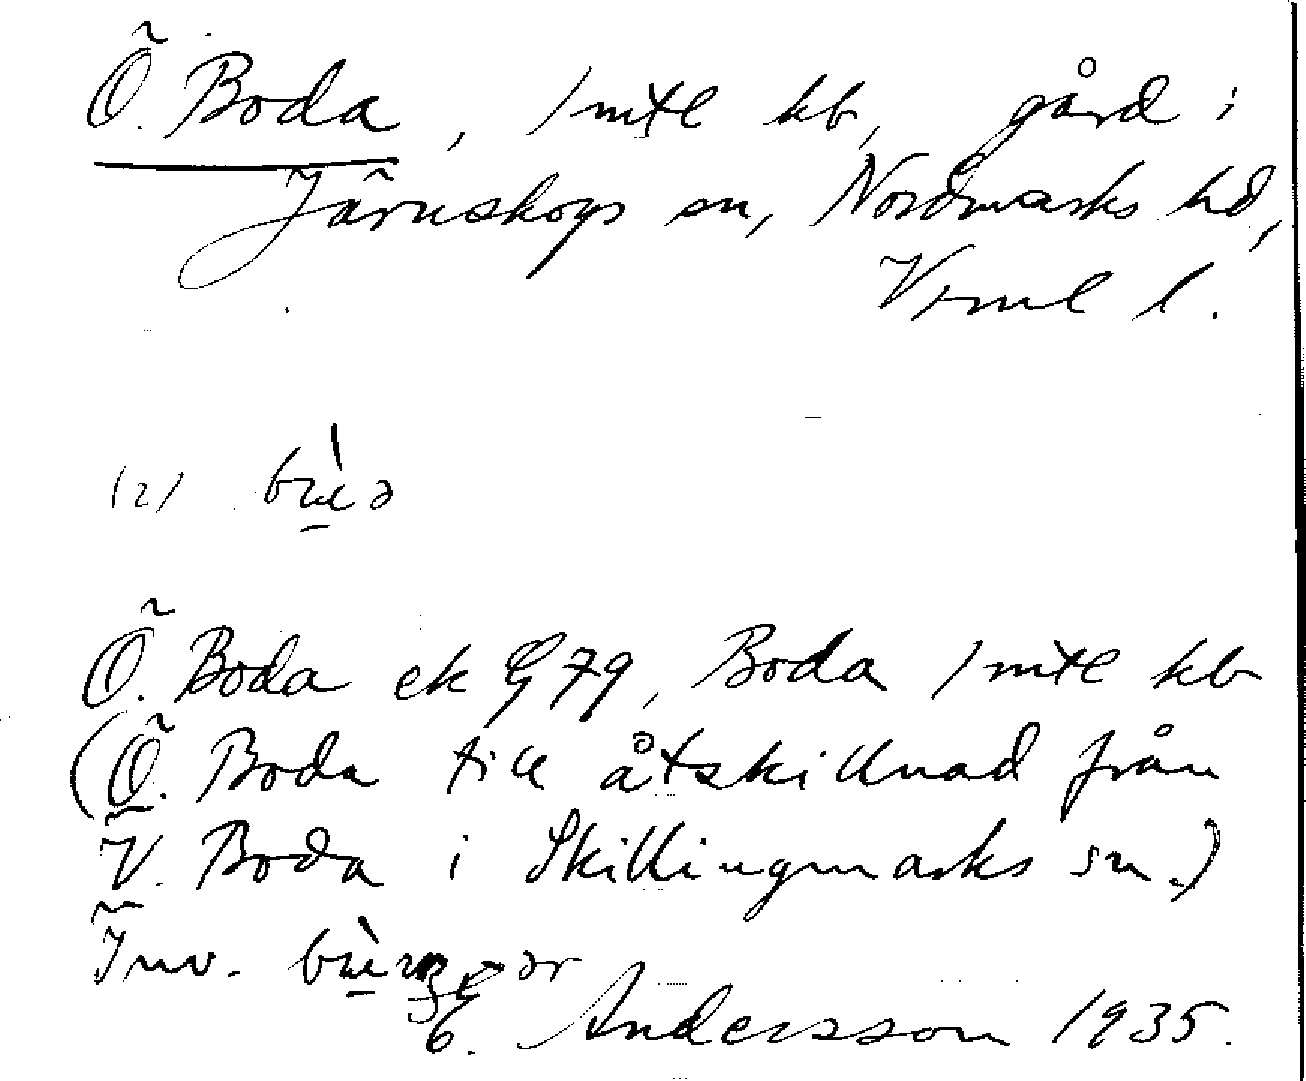 Ö. Boda, 1 mtl kb, gård i
Järnskogs sn, Nordmarks hd,
Vrml l.
(2) bu̠̇̀ə
Ö. Boda ek G 79, Boda 1 mtl kb
(Ö. Boda till åtskillnad från
V. Boda i Skillingmarks sn.)
Inv.
E. Andersson 1935.